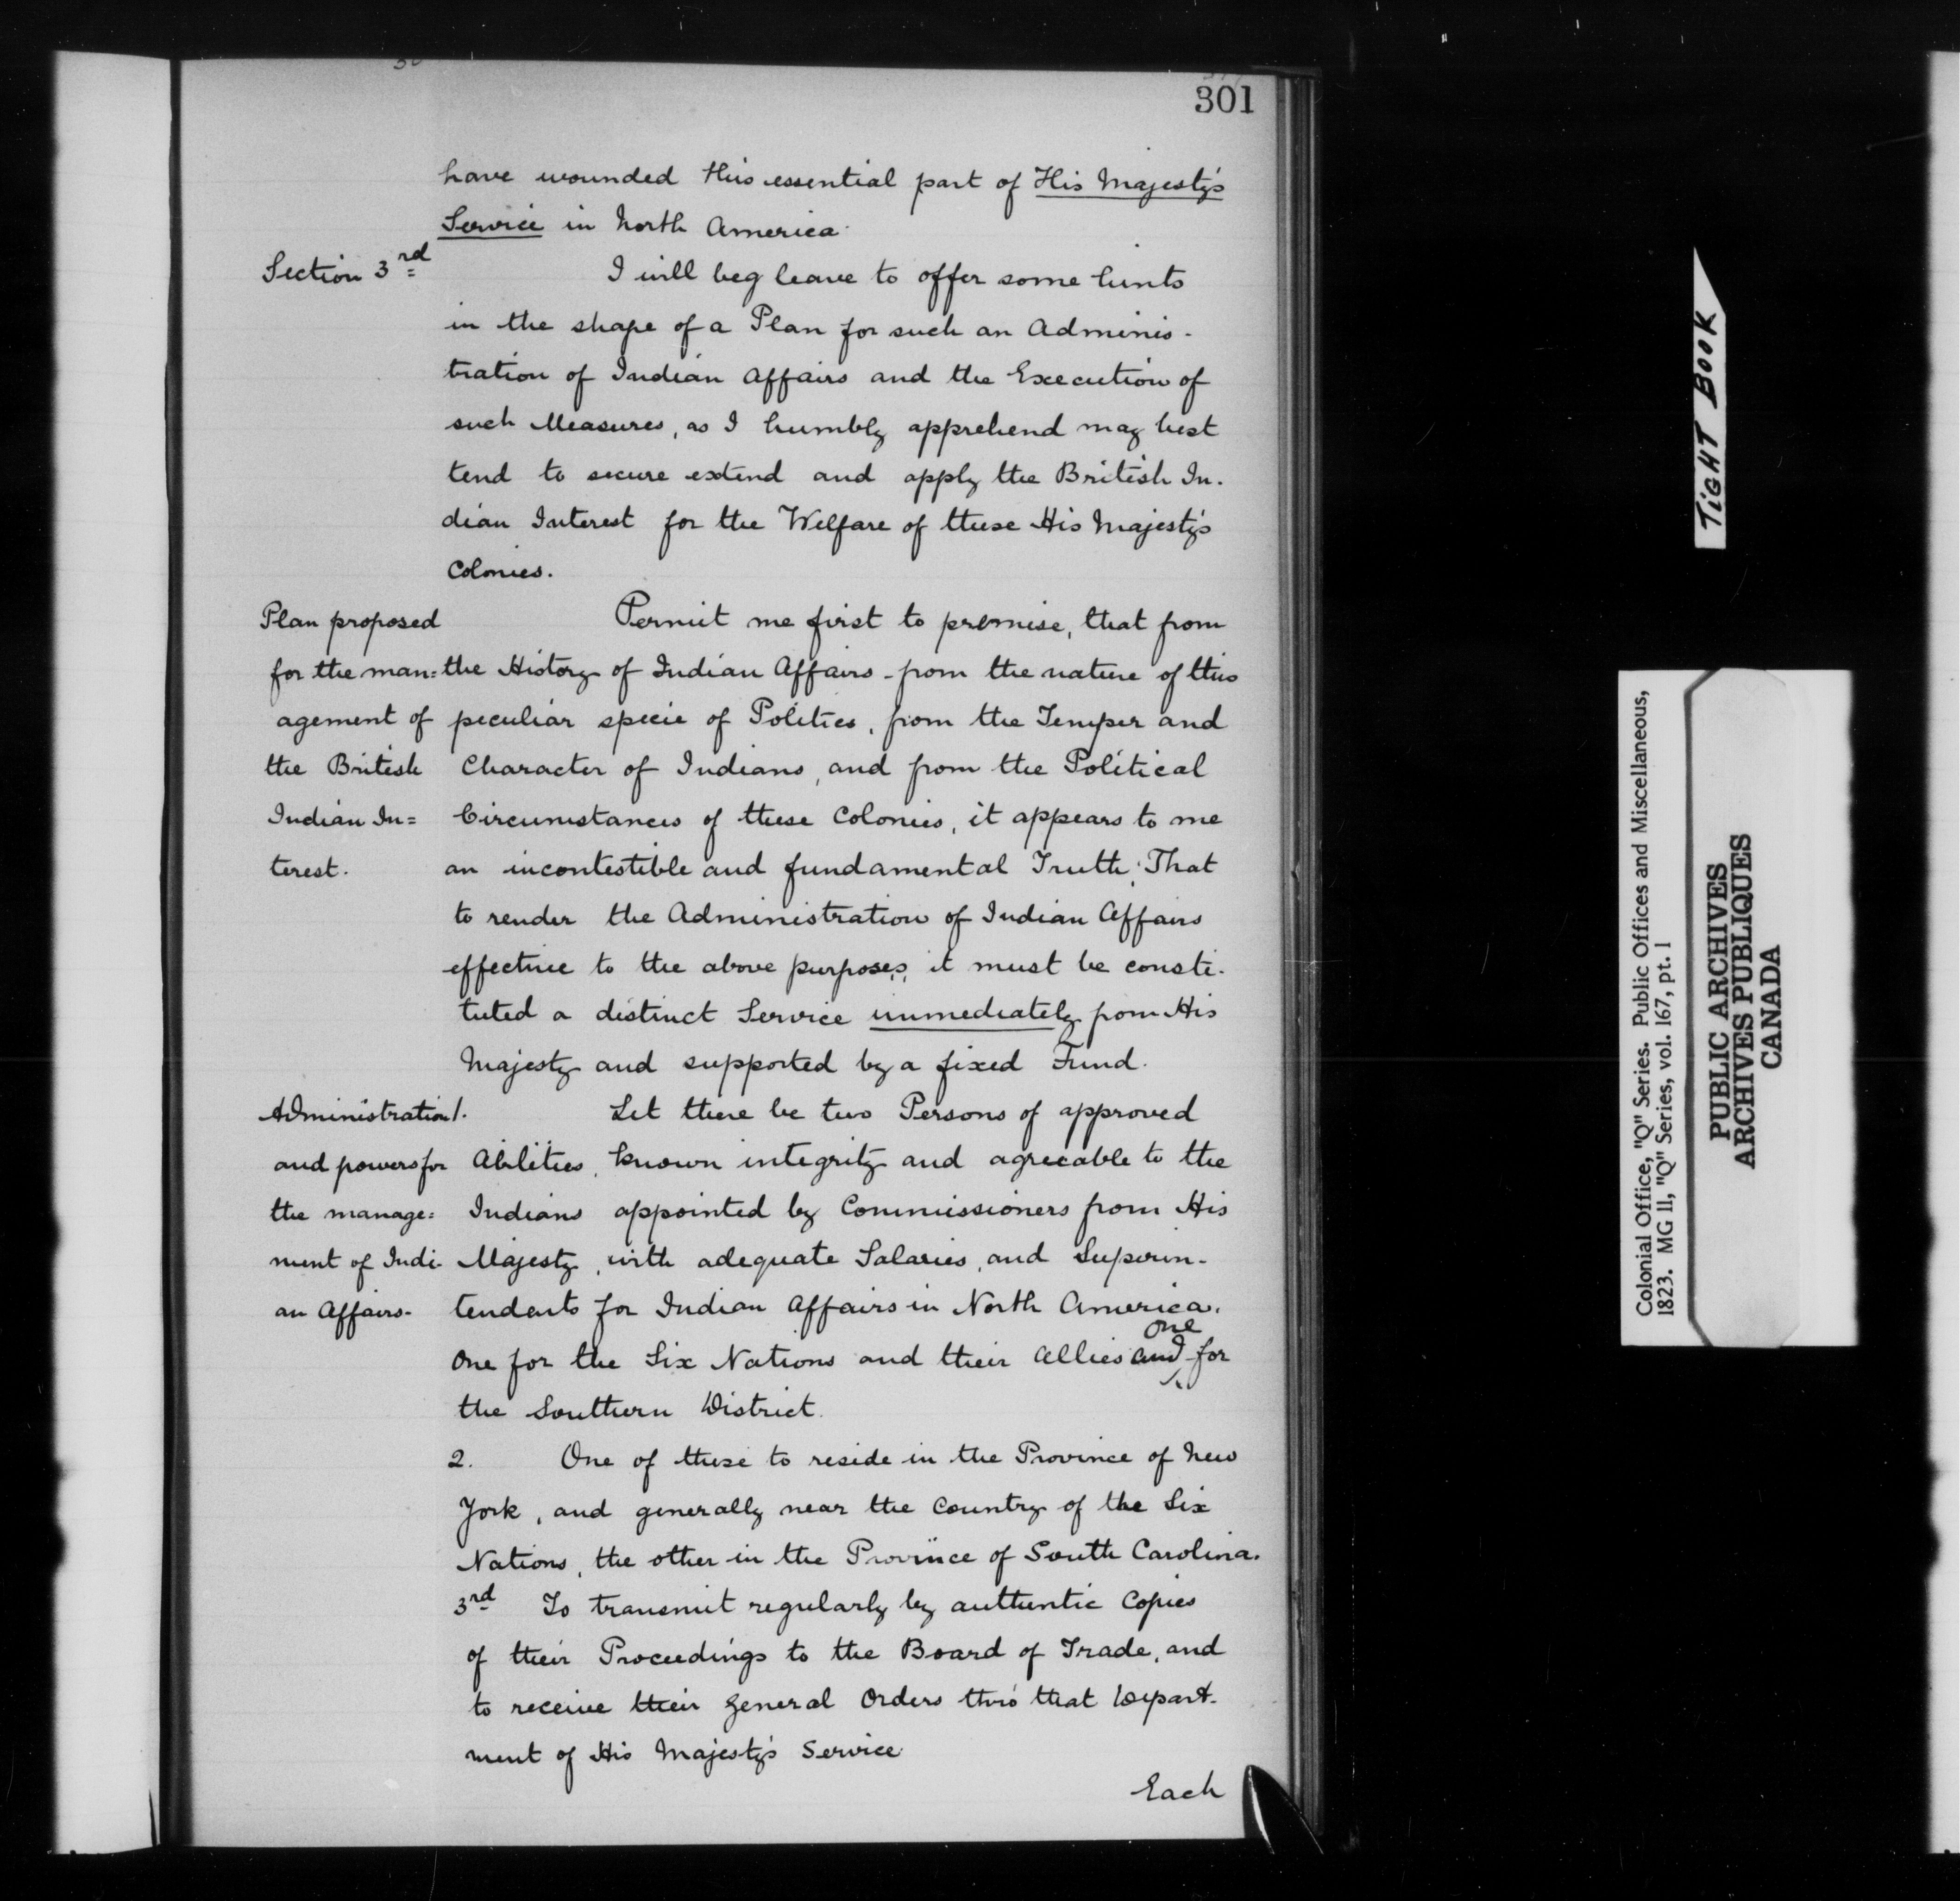 301
have wounded this essential part of His Majesty's
Service in North America.
Section 3rd
I will beg leave to offer some hints
in the shape of a Plan for such an Adminis-
tration of Indian Affairs and the Execution of
such Measures, as I humbly apprehend may best
tend to secure extend and apply the British In-
dian Interest for the Welfare of these His Majesty's
Colonies.
Plan proposed
for the man=
agement of
the British
Indian In=
terest.
Permit me first to premise, that from
the History of Indian Affairs - from the nature of this
peculiar specie of Politics, from the Temper and
Character of Indians, and from the Political
Circumstances of these Colonies, it appears to me
an incontestible and fundamental Truth; That
to render the Administration of Indian Affairs
effective to the above purposes, it must be consti-
tuted a distinct Service immediately from His
Majesty and supported by a fixed Fund.
Administration
and powers for
the manage=
ment of Indi-
an Affairs-
1. Let there be two Persons of approved
Abilities, known integrity and agreeable to the
Indians appointed by Commissioners from His
Majesty, with adequate Salaries, and Superin-
tendents for Indian Affairs in North America.
One for the Six Nations and their Allies and one for
the Southern District.
2. One of these to reside in the Province of New
York, and generally near the Country of the Six
Nations, the other in the Province of South Carolina.
3rd To transmit regularly by authentic Copies
of their Proceedings to the Board of Trade, and
to receive their General Orders thro' that Depart-
ment of His Majesty's Service
Each
TIGHT BOOK
Colonial Office, "Q" Series. Public Offices and Miscellaneous,
1823. MG 11, "Q" Series, vol. 167, pt. 1
PUBLIC ARCHIVES
ARCHIVES PUBLIQUES
CANADA